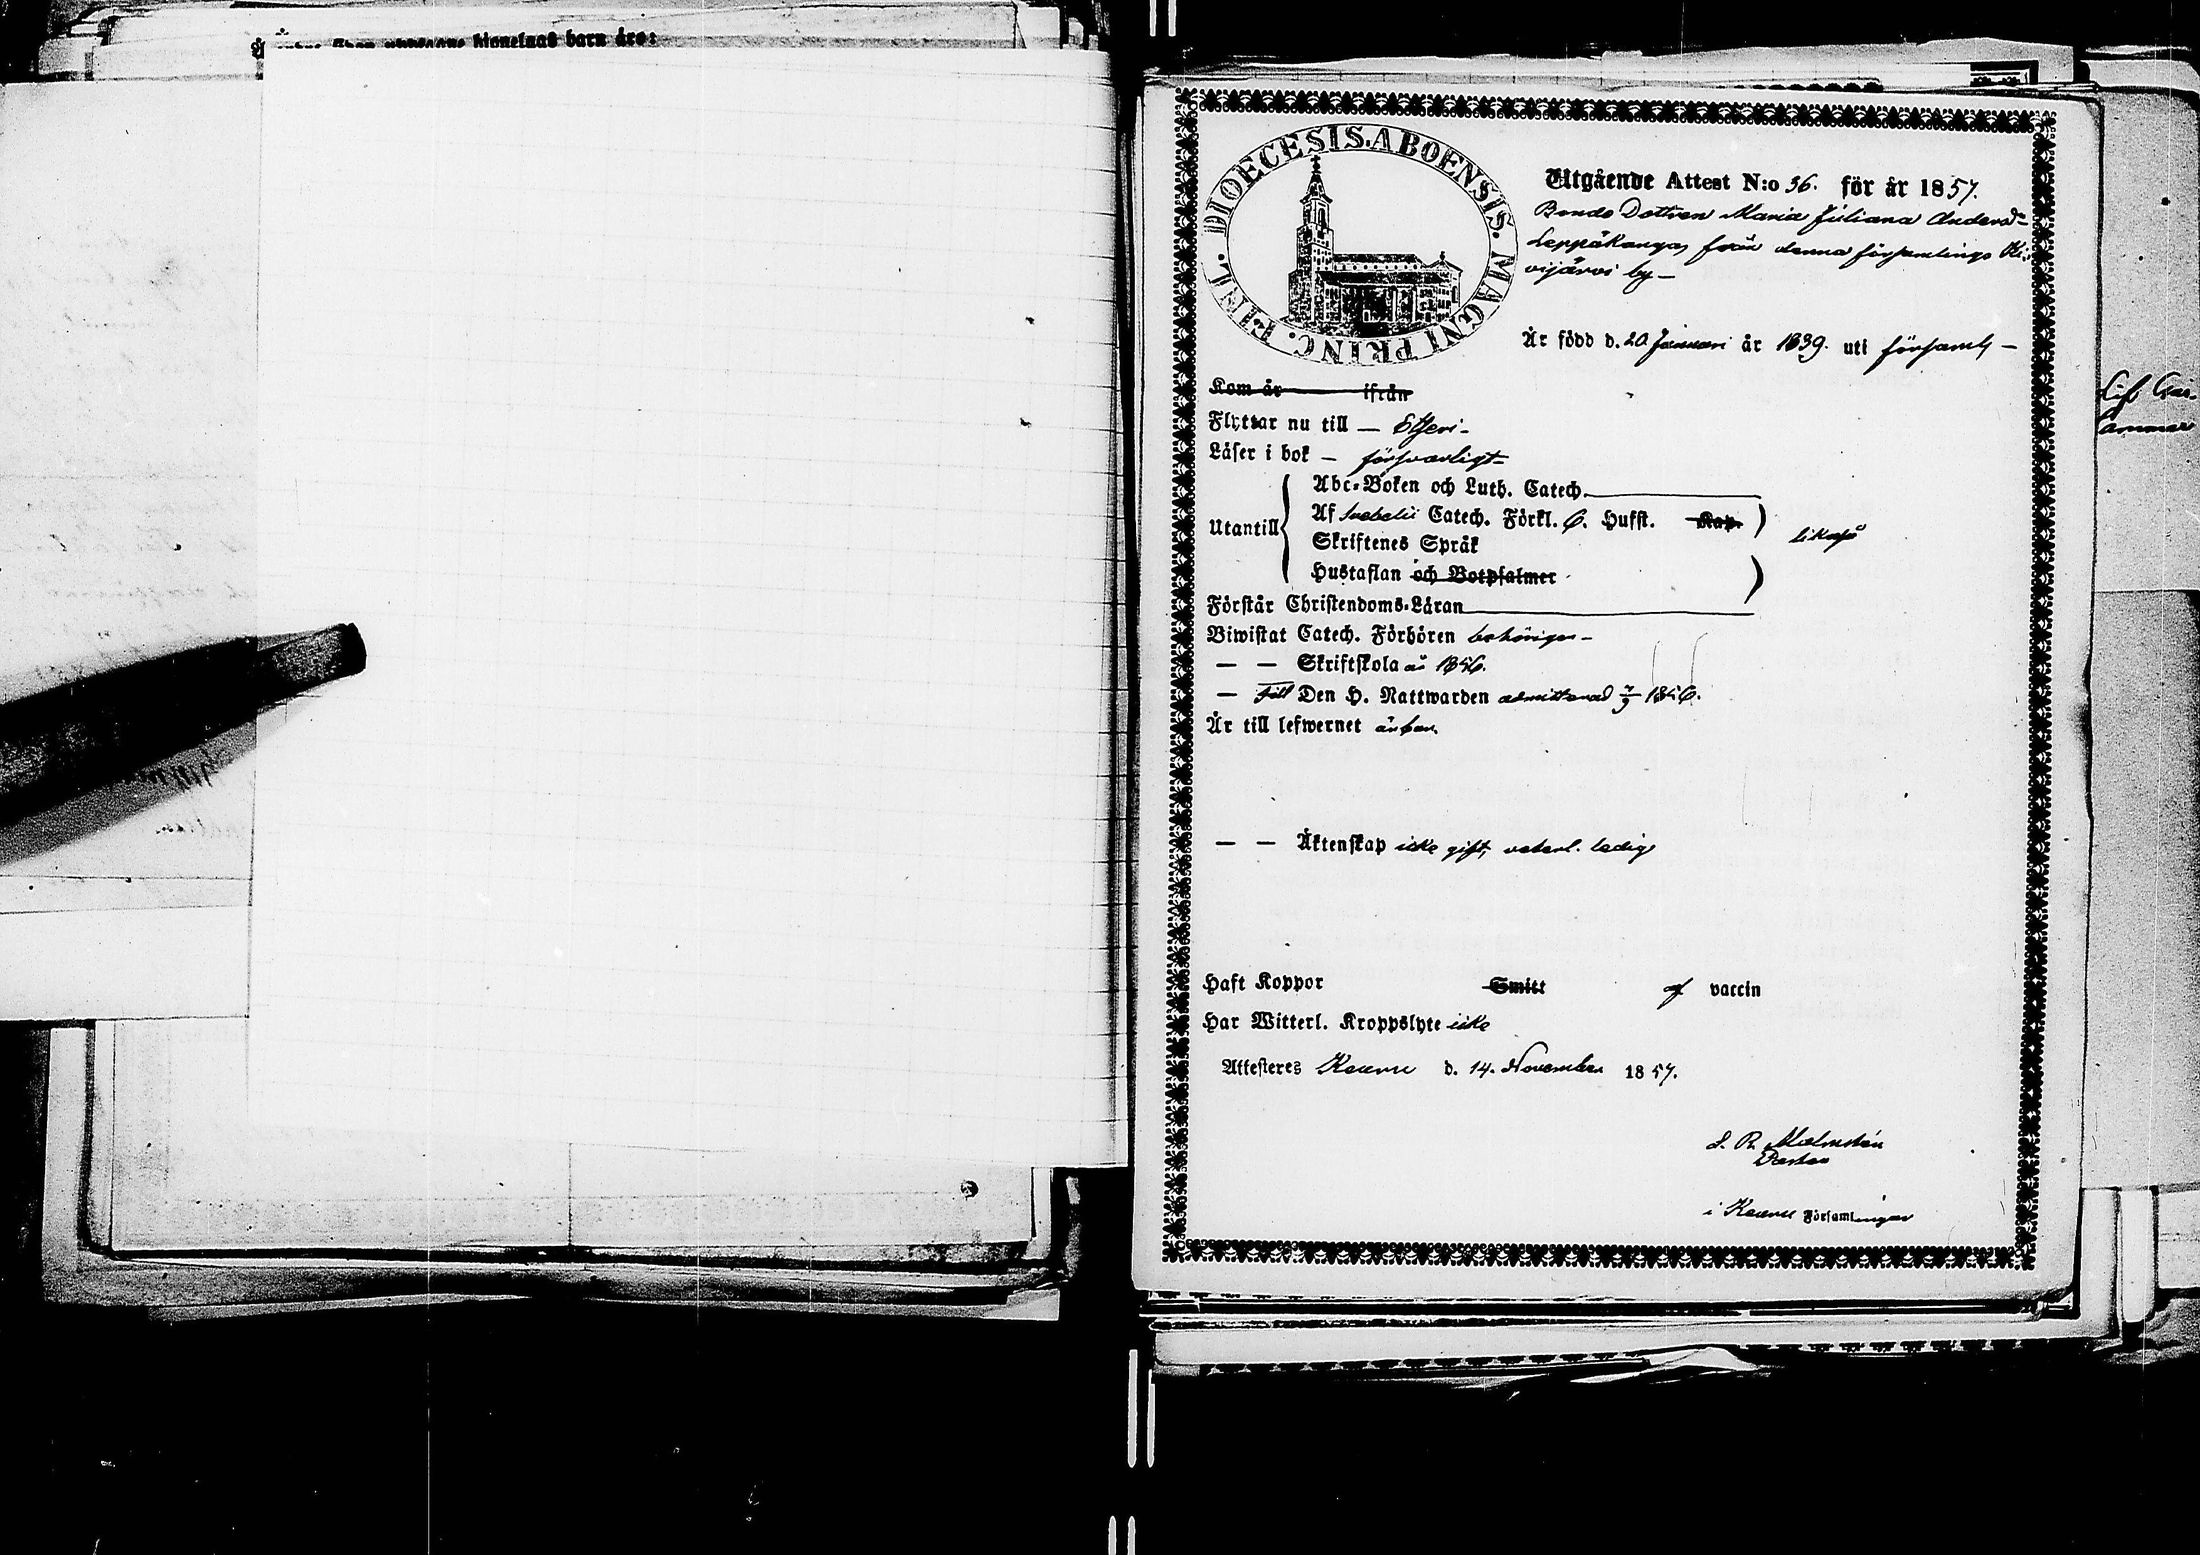 hinnelnas barn äro:
DIOECESIS. ABOENSIS. MAGNI PRINC. FINL.
Utgående Attest N:o 36. för år 1857.
Bonde Dottren Maria Juliana Andersdr
Leppäkangas från denna församlings Ki-
vijärvi by —
Är född d. 20 Januari år 1839. uti församl —
Kom år ifrån
Flyttar nu till — Etseri —
Läser i bok — försvarligt —
Utantill
Abc-Boken och Luth. Catech.
Af Svebelii Catech. Förkl. 6. Hufst. Kap.
likaså
Skriftenes Språk
Hustaflan och Botpsalmer
Förstår Christendoms-Läran
Biwistat Catech. Förhören behörigen —
— — Skriftskola år 1856.
— till Den H. Nattwarden admitterad 7/9 1856.
Är till lefwernet ärbar.
— — Äktenskap icke gift, veterl. ledig
Haft Koppor Smitt af vaccin
Har Witterl. Kroppslyte icke
Attesteres Keuru d. 14. November 1857.
Malmstén
Pastor
i Keuru Församlingar